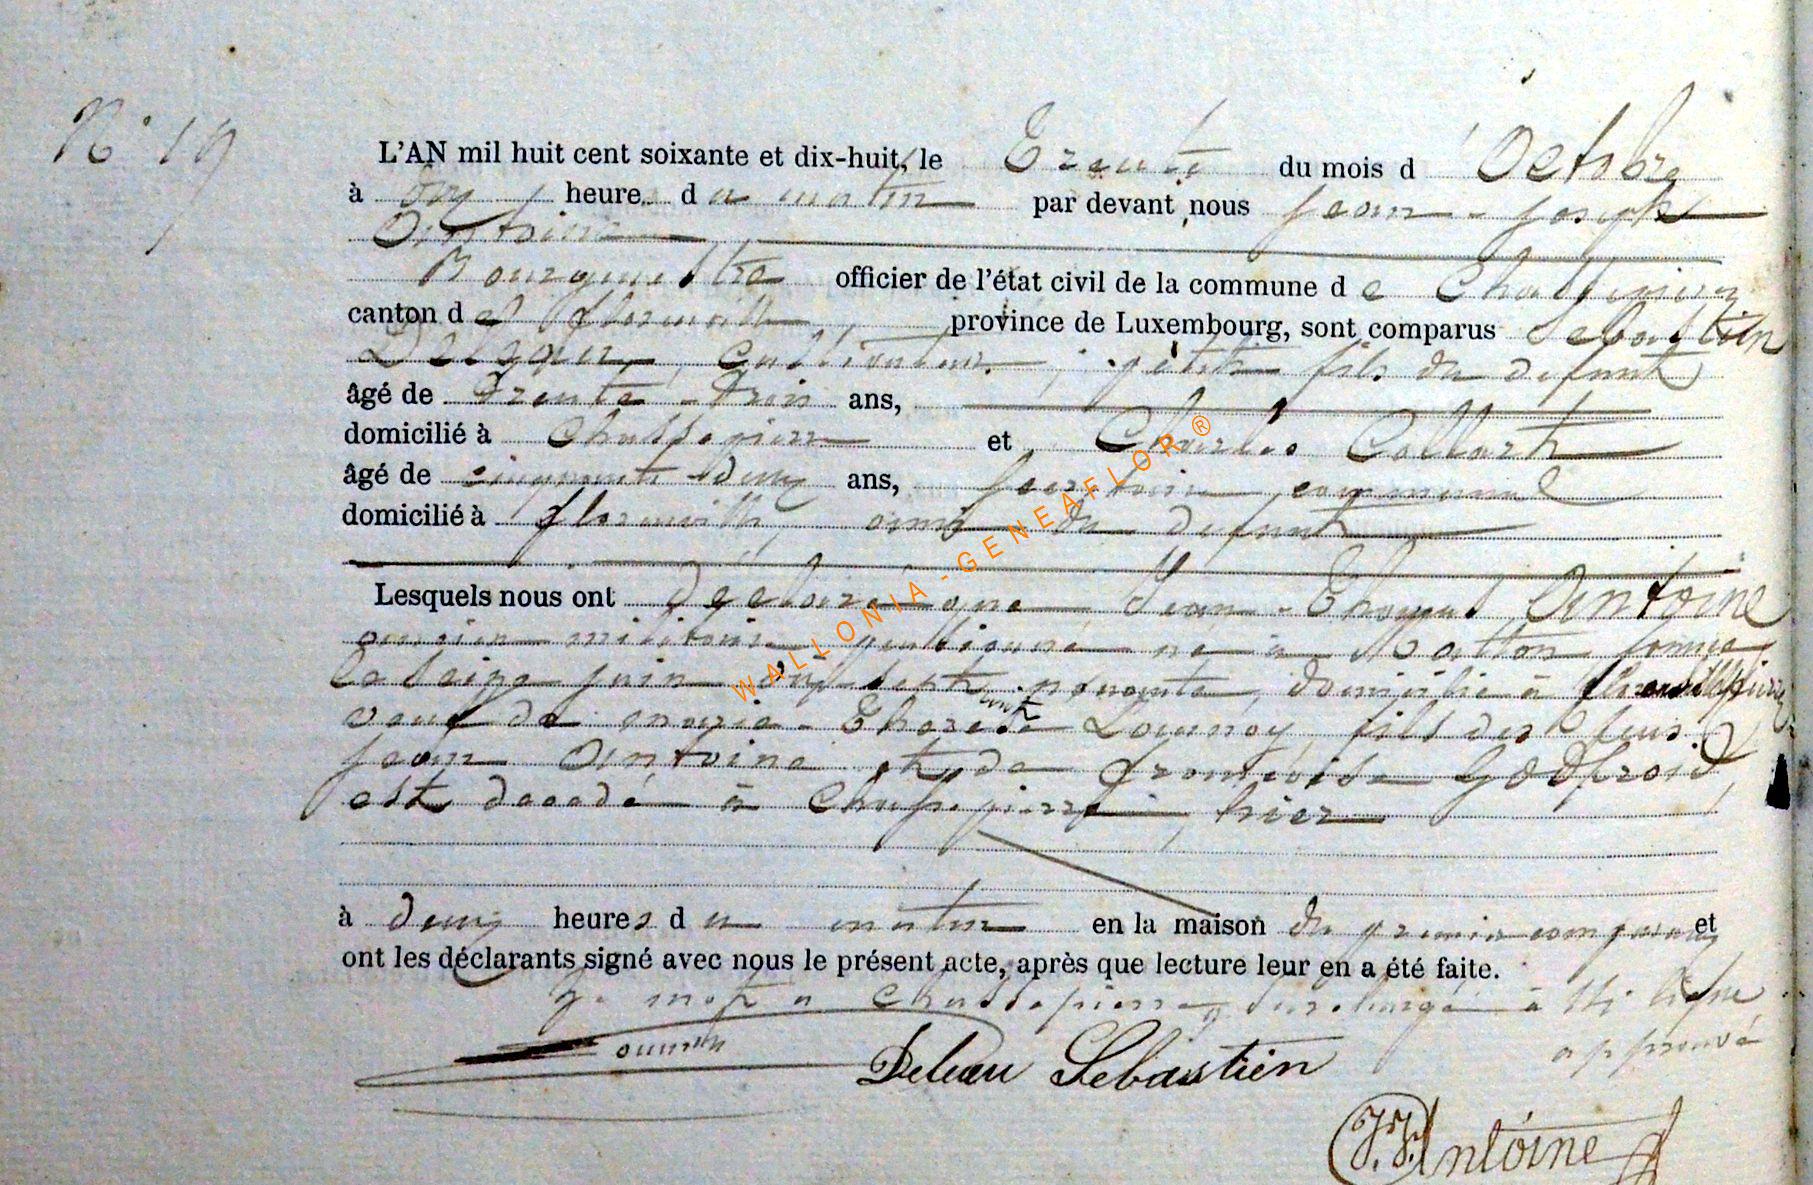 N° 19
L'AN mil huit cent soixante et dix-huit, le Trente du mois d'Octobre
à onze heure du matin par devant nous Jean-Joseph
Antoine
Bourgmestre officier de l'état civil de la commune de Chassepierre
canton de Florenville province de Luxembourg, sont comparus Sebastien
Deleau, Cultivateur, petit fils du defunt
âgé de Trente-Trois ans,
domicilié à Chassepierre et Charles Collart
âgé de cinquante-deux ans, communal
domicilié à florenville, ami du defunt
Lesquels nous ont déclaré que Jean-Antoine
ancien militaire pentionné né à
le seize juin sept cent nonante, domicilié à
veuf de marie-Therese Launoy, fils des feus
Jean Antoine et de francoise Godfroid,
est décédé à Chassepierre, hier
à deux heures du matin en la maison du premier comparant et
ont les déclarants signé avec nous le présent acte, après que lecture leur en a été faite.
Le mot a Chassepierre surchargé à la ligne
approuvé
Deleau Sebastien
J. J. Antoine
WALLONIA-GENEAFLOR ®